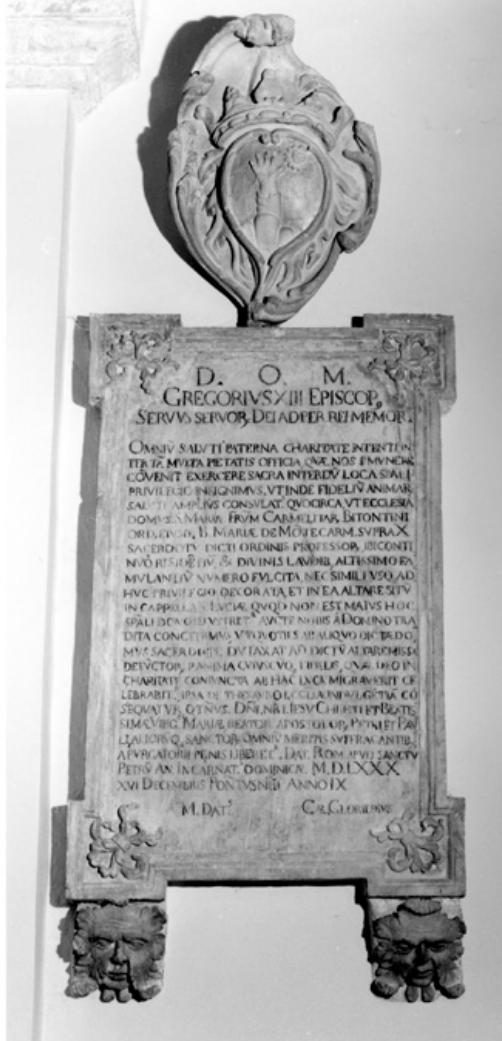 D. O. M.
GREGORIVS XIII EPISCOP,
SERVVS SERVOR, DEI AD PER REI MEMOR.
OMNIV SALVTI PATERNA CHARITATE INTENTI IN
MVLTA PIETATIS OFFICIA QVÆ NOS MVNERE
COVENIT EXERCERE SACRA INTERDV LOCA SPALI
PRIVILEGIO INSIGNIMVS, VT INDE FIDELIV ANIMAR,
SALVTI AMPLIVS CONSVLAT. QVOCIRCA VT ECCLESIA
DOMVS S. MARIÆ FRVM CARMELITAR, BITONTINI
ORD, B. MARIÆ DE MOTE CARM. SVPRA X
SACERDOTV DICTI ORDINIS PROFESSOR, IBI CONTI
NVO & DIVINIS LAVDIB, ALTISSIMO FA
MVLANTIV NVMERO FVLCITA NEC SIMILI VSQ, AD
HVC PRIVILEGIO DECORATA, ET IN EA ALTARE SITV
IN CAPPELLA S. LVCIÆ QVQD NON EST MAIVS HOC
SPALI DONO NOBIS A DOMINO TRA
DITA CONCEDIMVS VT QVOTIES AB ALIQVO DICTÆ DO,
MVS SACERDOTE, DVTAXAT AD DICTV ALTARE MISSA
DEFVCTOR, P ANIMA CVIVSCVQ, FIDELIS, QVÆ DEO IN
CHARITATE CONIVNCTA AB HAC LVCE MIGRAVERIT CE
LEBRABIT, IPSA DE THESAVRO ECCLESIÆ INDVLGETIA CO
SEQVATVR, IESV CHRISTI ET BEATIS
SIMÆ VIRG. MARIÆ BEATOR, APOSTOLOR, PETRI ET PAV
LI, ALIORVQ, SANCTOR, OMNIV MERITIS SVFFRAGANTIB,
A PVRGATORII PENIS LIBERET. DAT. ROMÆ APVD SANCTV
PETRV AN. INCARNAT. DOMINICÆ M.D.LXXX
XVI DECEMBRIS ANNO IX
M. DAT. CÆ, GLORIERIVS